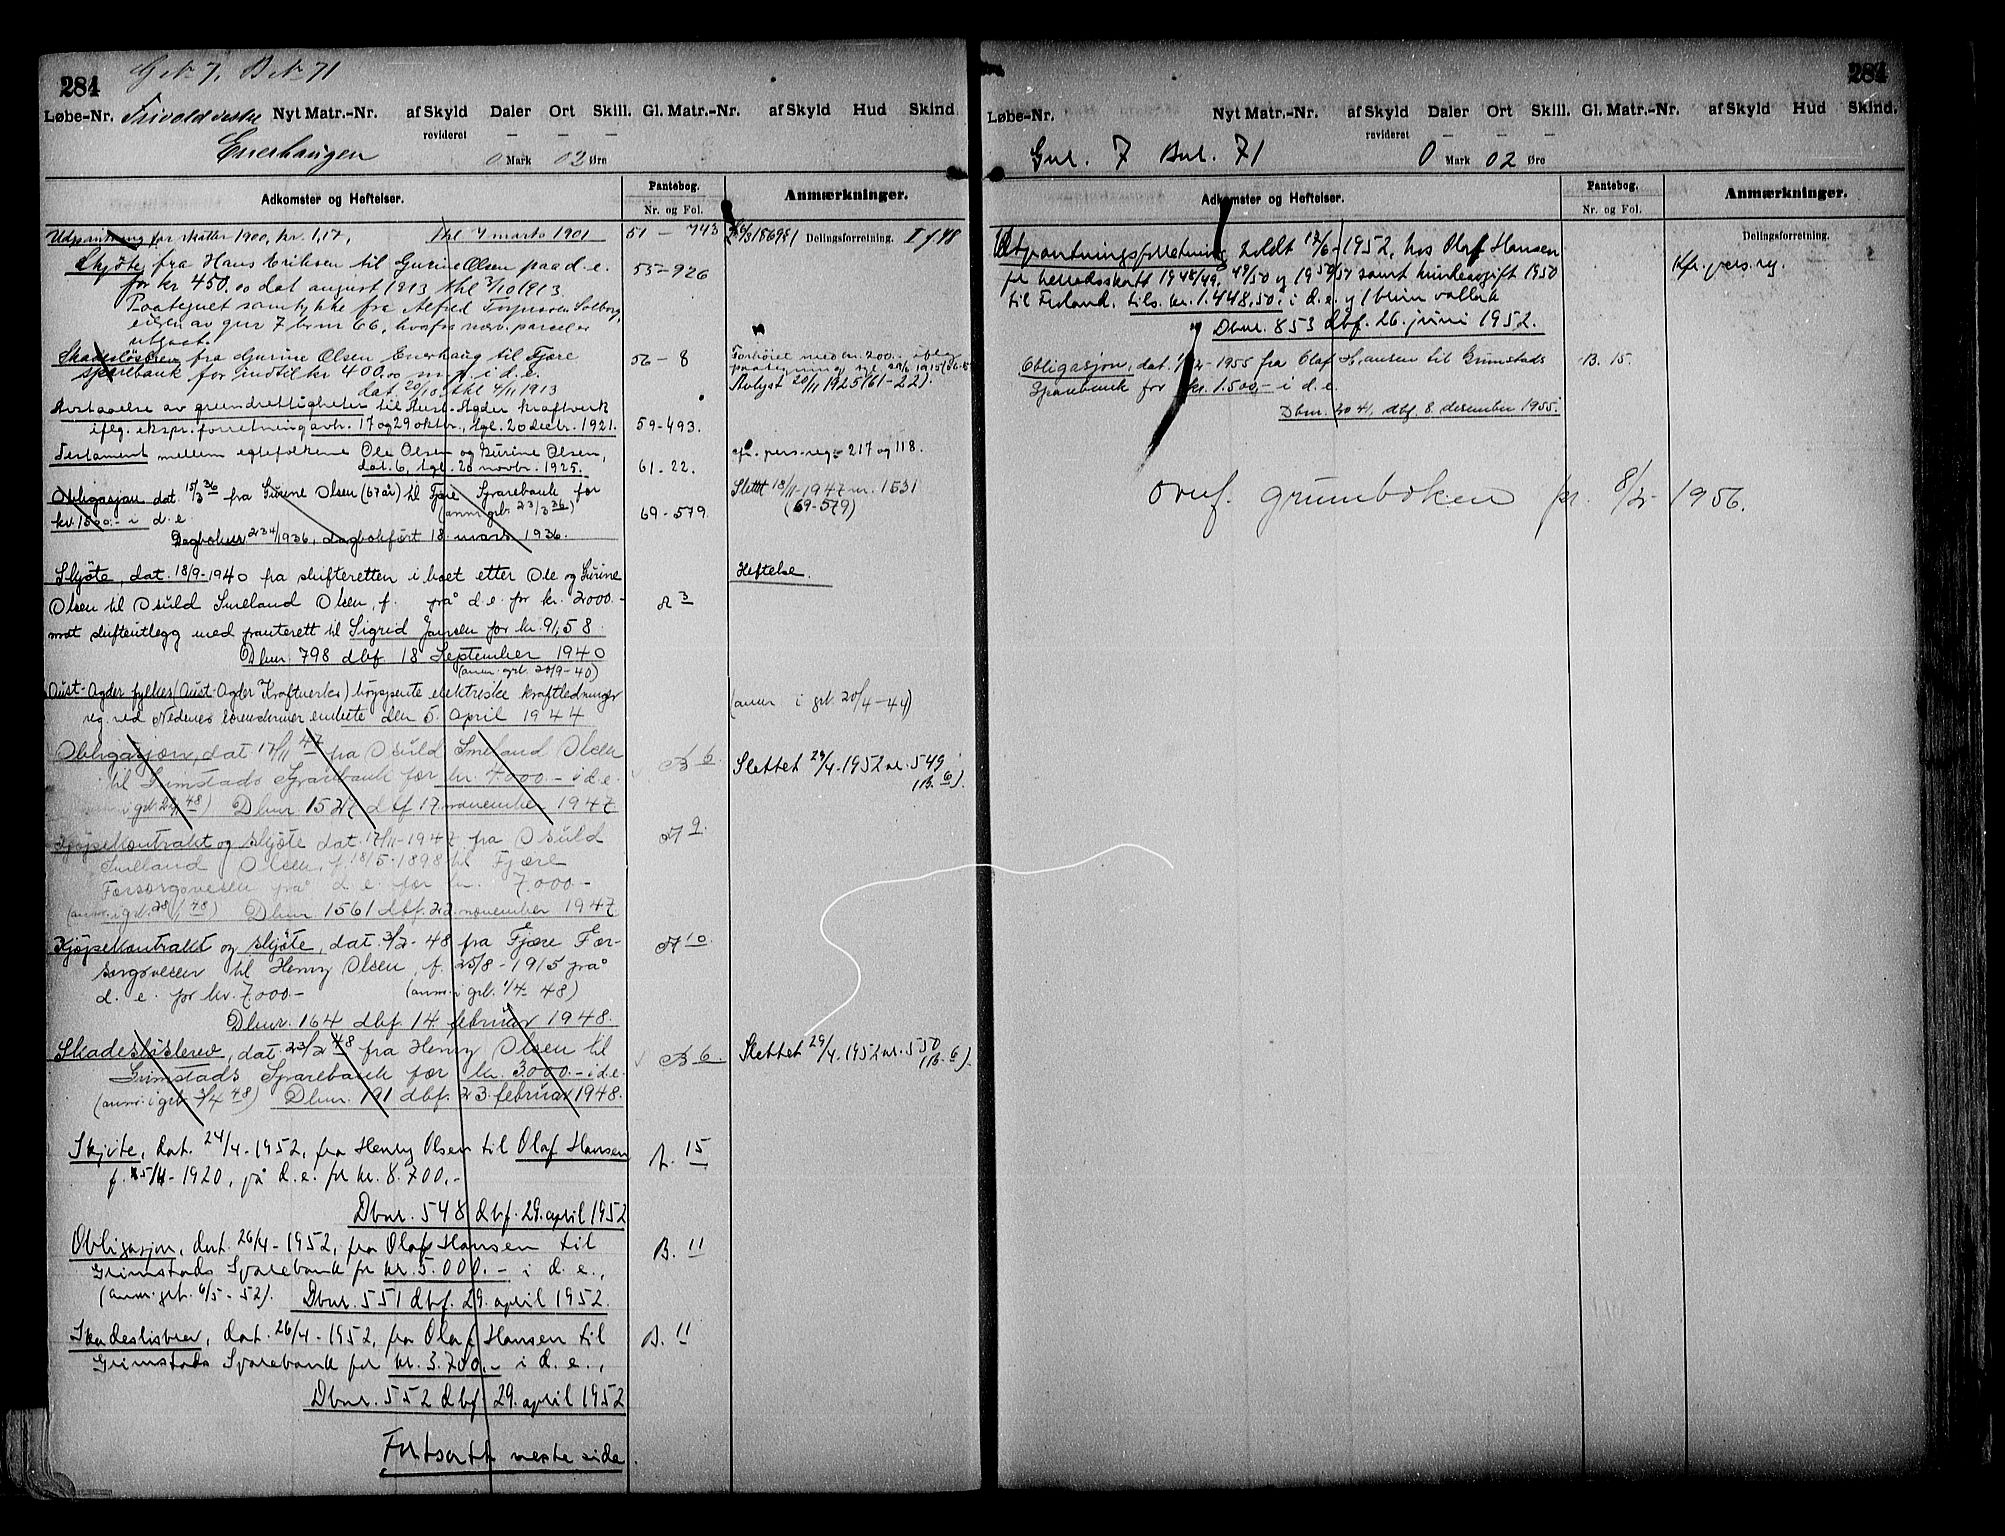 284
G No 7, B No 71
Løbe-Nr. Trivold vestre Nyt Matr.-Nr. af Skyld Daler Ort Skill. Gl. Matr.-Nr. af Skyld Hud Skind
revideret
Enerhaugen 0 Mark 02 Øre
Adkomster og Heftelser.
Pantebog.
Nr. og Fol.
Anmærkninger.
Udpantning for skatter 1900, kr. 1,17, thl 7 marts 1901
51 – 743
Delingsforretning. I f 48
Skjøte fra Hans Eriksen til Gurine Olsen paa d. e.
for kr 450.00 dat august 1913 thl 3/10 1913.
55-926
Paategnet samtykke fra Alfred Solberg,
eieren av gnr 7 bnr 66, hvorfra nærv. parcel er
utgaat.
Skadesløsbrev fra Gurine Olsen Enerhaug til Fjære
sparebank for indtil kr 400.00 m. p. i d. e.
dat 20/10 thl 4/11 1913
56 – 8
Forhøiet med kr. 200.-
Avlyst 20/11 1925 (61-22).
Avstaaelse av grundrettigheter til Aust-Agder kraftverk
iflg. ekspr. forretning avh. 17 og 29 oktbr., tgl. 20 decbr. 1921.
59-493.
Testament mellem egtefolkene Ole Olsen og Gurine Olsen,
dat. 6, tgl. 20 novbr. 1925.
61-22.
cfr. pers-reg. 217 og 118.
Obligasjon dat 15/3 36 fra Gurine Olsen (67 år) til Fjære Sparebank for
kr. 1500.- i d. e. (anm. grb. 23/3 36)
Dagboknr. 234/1936, dagbokført 18. mars 1936.
69-579.
Slettet 18/11-1947 nr. 1531
(69-579)
Skjøte, dat. 18/9-1940 fra skifteretten i boet etter Ole og Gurine
Olsen til Osuld Smeland Olsen, f. på d. e. for kr. 2000.-
mot skifteutlegg med panterett til Sigrid Jansen for kr. 91,58.
Dbnr. 798 dbf 18 September 1940
(anm. grb. 20/9-40)
A 3
Heftelse.
Aust-Agder fylkes (Aust-Agder Kraftverks) høispente elektriske kraftledninger
reg. ved Nedenes sorenskriverembete den 5. april 1944
(anm i grb 20/4-44)
Obligasjon, dat 17/11 47 fra Osuld Smeland Olsen
til Grimstads Sparebank for kr. 4000.- i d. e.
Dbnr 1527 dbf 17. november 1947
B 6.
Slettet 29/4-1952 nr. 549
(B. 6).
Kjøpekontrakt og skjøte dat 17/11-1947 fra Osuld
Smeland Olsen, f. 18/5-1898 til Fjære
Forsorgsvesen på d. e. for kr. 7.000.-
(anm. i grb. 28/1 48) Dbnr 1561 dbf. 22 november 1947
A 9.
Kjøpekontrakt og skjøte, dat. 3/2-48 fra Fjære For-
sorgsvesen til Henry Olsen, f. 25/8-1915 på
d. e. for kr. 7.000.- (anm. i grb. 1/4-48)
Dbnr. 164 dbf. 14. februar 1948.
A 10.
Skadesløsbrev, dat 23/2 48 fra Henry Olsen til
Grimstads Sparebank for kr. 3000.- i d. e.
(anm. i grb 1/4 48) Dbnr. 191 dbf. 23. februar 1948.
B 6.
Slettet 29/4-1952 nr. 550
(B. 6).
Skjøte, dat. 24/4-1952, fra Henry Olsen til Olaf Hansen
f. 1920, på d. e. for kr. 8.700.-
Dbnr. 548 dbf. 29. april 1952
A. 15
Obligasjon, dat. 26/4-1952, fra Olaf Hansen til
Grimstads Sparebank for kr. 5.000.- i d. e.,
(anm. grb. 6/5-52). Dbnr. 551 dbf. 29. april 1952.
B. 11
Skadesløsbrev, dat. 26/4-1952, fra Olaf Hansen til
Grimstads Sparebank for kr. 3.700.- i d. e.,
Dbnr. 552 dbf 29. april 1952
B. 11
Fortsatt neste side.
284
Løbe-Nr. Nyt Matr.-Nr. af Skyld Daler Ort Skill. Gl. Matr.-Nr. af Skyld Hud Skind.
revideret
Gnr. 7 Bnr. 71 0 Mark 02 Øre
Adkomster og Heftelser.
Pantebog.
Nr. og Fol.
Anmærkninger.
Delingsforretning.
Utpantningsforretning holdt 12/6-1952, hos Olaf Hansen
for herredsskatt 1948/49, 49/50 og 1950/51 samt hundeavgift 1950
til Froland, tils. kr. 1.448,50, i d. e. og 1 brun vallak
Dbnr. 853 dbf. 26. juni 1952.
Kfr. pers. reg.
Obligasjon, dat. 1/12-1955 fra Olaf Hansen til Grimstads
Sparebank for kr. 1.500,- i d. e.
Dbnr. 2041, dbf. 8. desember 1955.
B. 15.
Ovf. grunnboken pr. 8/2-1956.